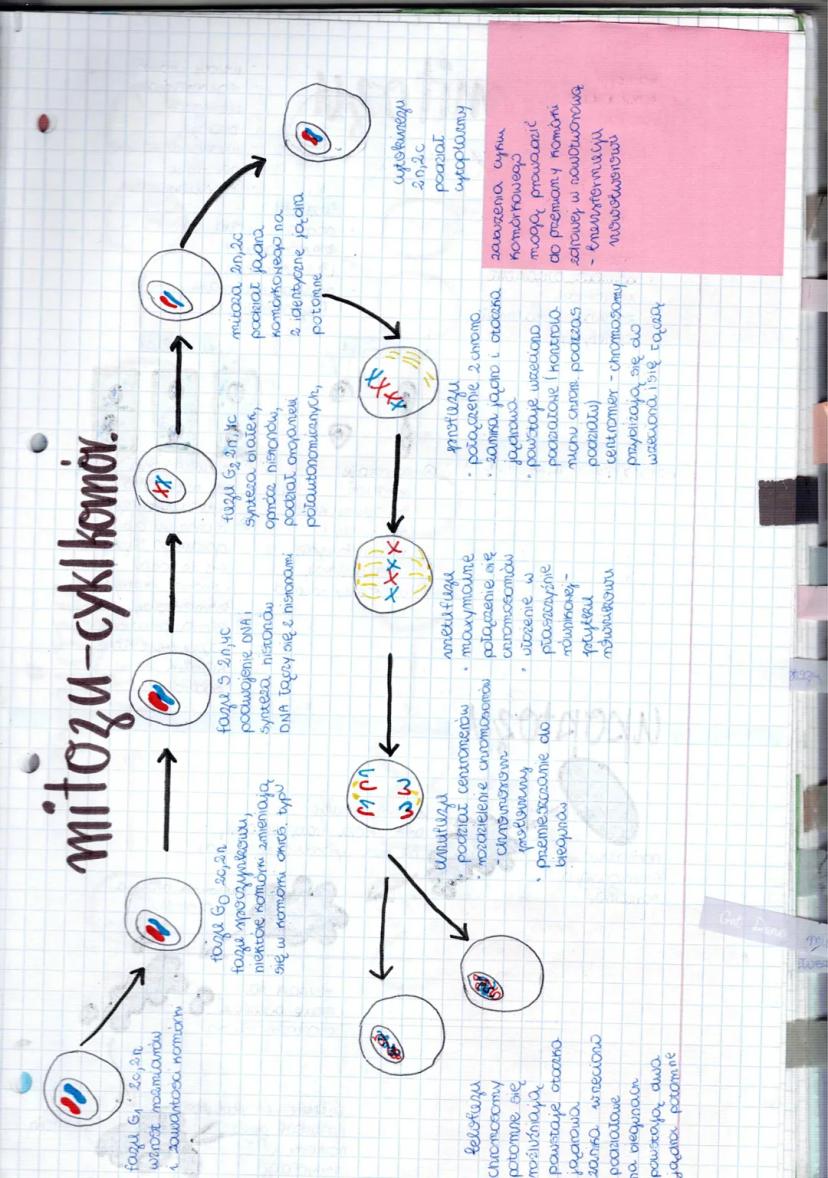 mitoza-cykl komór.
faza G1 2c,2n
wzrost rozmiarów
i zawartości komórki
faza G0 2c,2n
faza spoczynkowa,
niektóre komórki zmieniają
się w komórki okreś. typu
faza S 2n,4c
podwojenie DNA i
synteza histonów
DNA łączy się z histonami
faza G2 2n,4c
synteza białek,
oprócz histonów,
podział organelli
półautonomicznych,
mitoza 2n,2c
podział jądra
komórkowego na
2 identyczne jądra
potomne
cytokineza
2n,2c
podział
cytoplazmy
zaburzenia cyklu
komórkowego
mogą prowadzić
do przemiany komórki
zdrowej w nowotworową
- transformacja
nowotworowa
profaza
· połączenie 2 chroma.
· zanika jądro i otoczka
jądrowa
· powstaje wrzeciono
podziałowe (kontrola
ruchu chrom. podczas
podziału)
· centromer - chromosomy
przybliżają się do
wrzeciona i się łączą
metafaza
· maxymalne
połączenie się
chromosomów
· ułożenie w
płaszczyźnie
równikowej -
płytka
równikowa
anafaza
· podział centromerów
· rozdzielenie chromosomów
- chromosom
potomny
· przemieszczanie do
biegunów
telofaza
chromosomy
potomne się
rozluźniają
powstaje otoczka
jądrowa
zanika wrzeciono
podziałowe
na biegunach
powstają dwa
jądra potomne